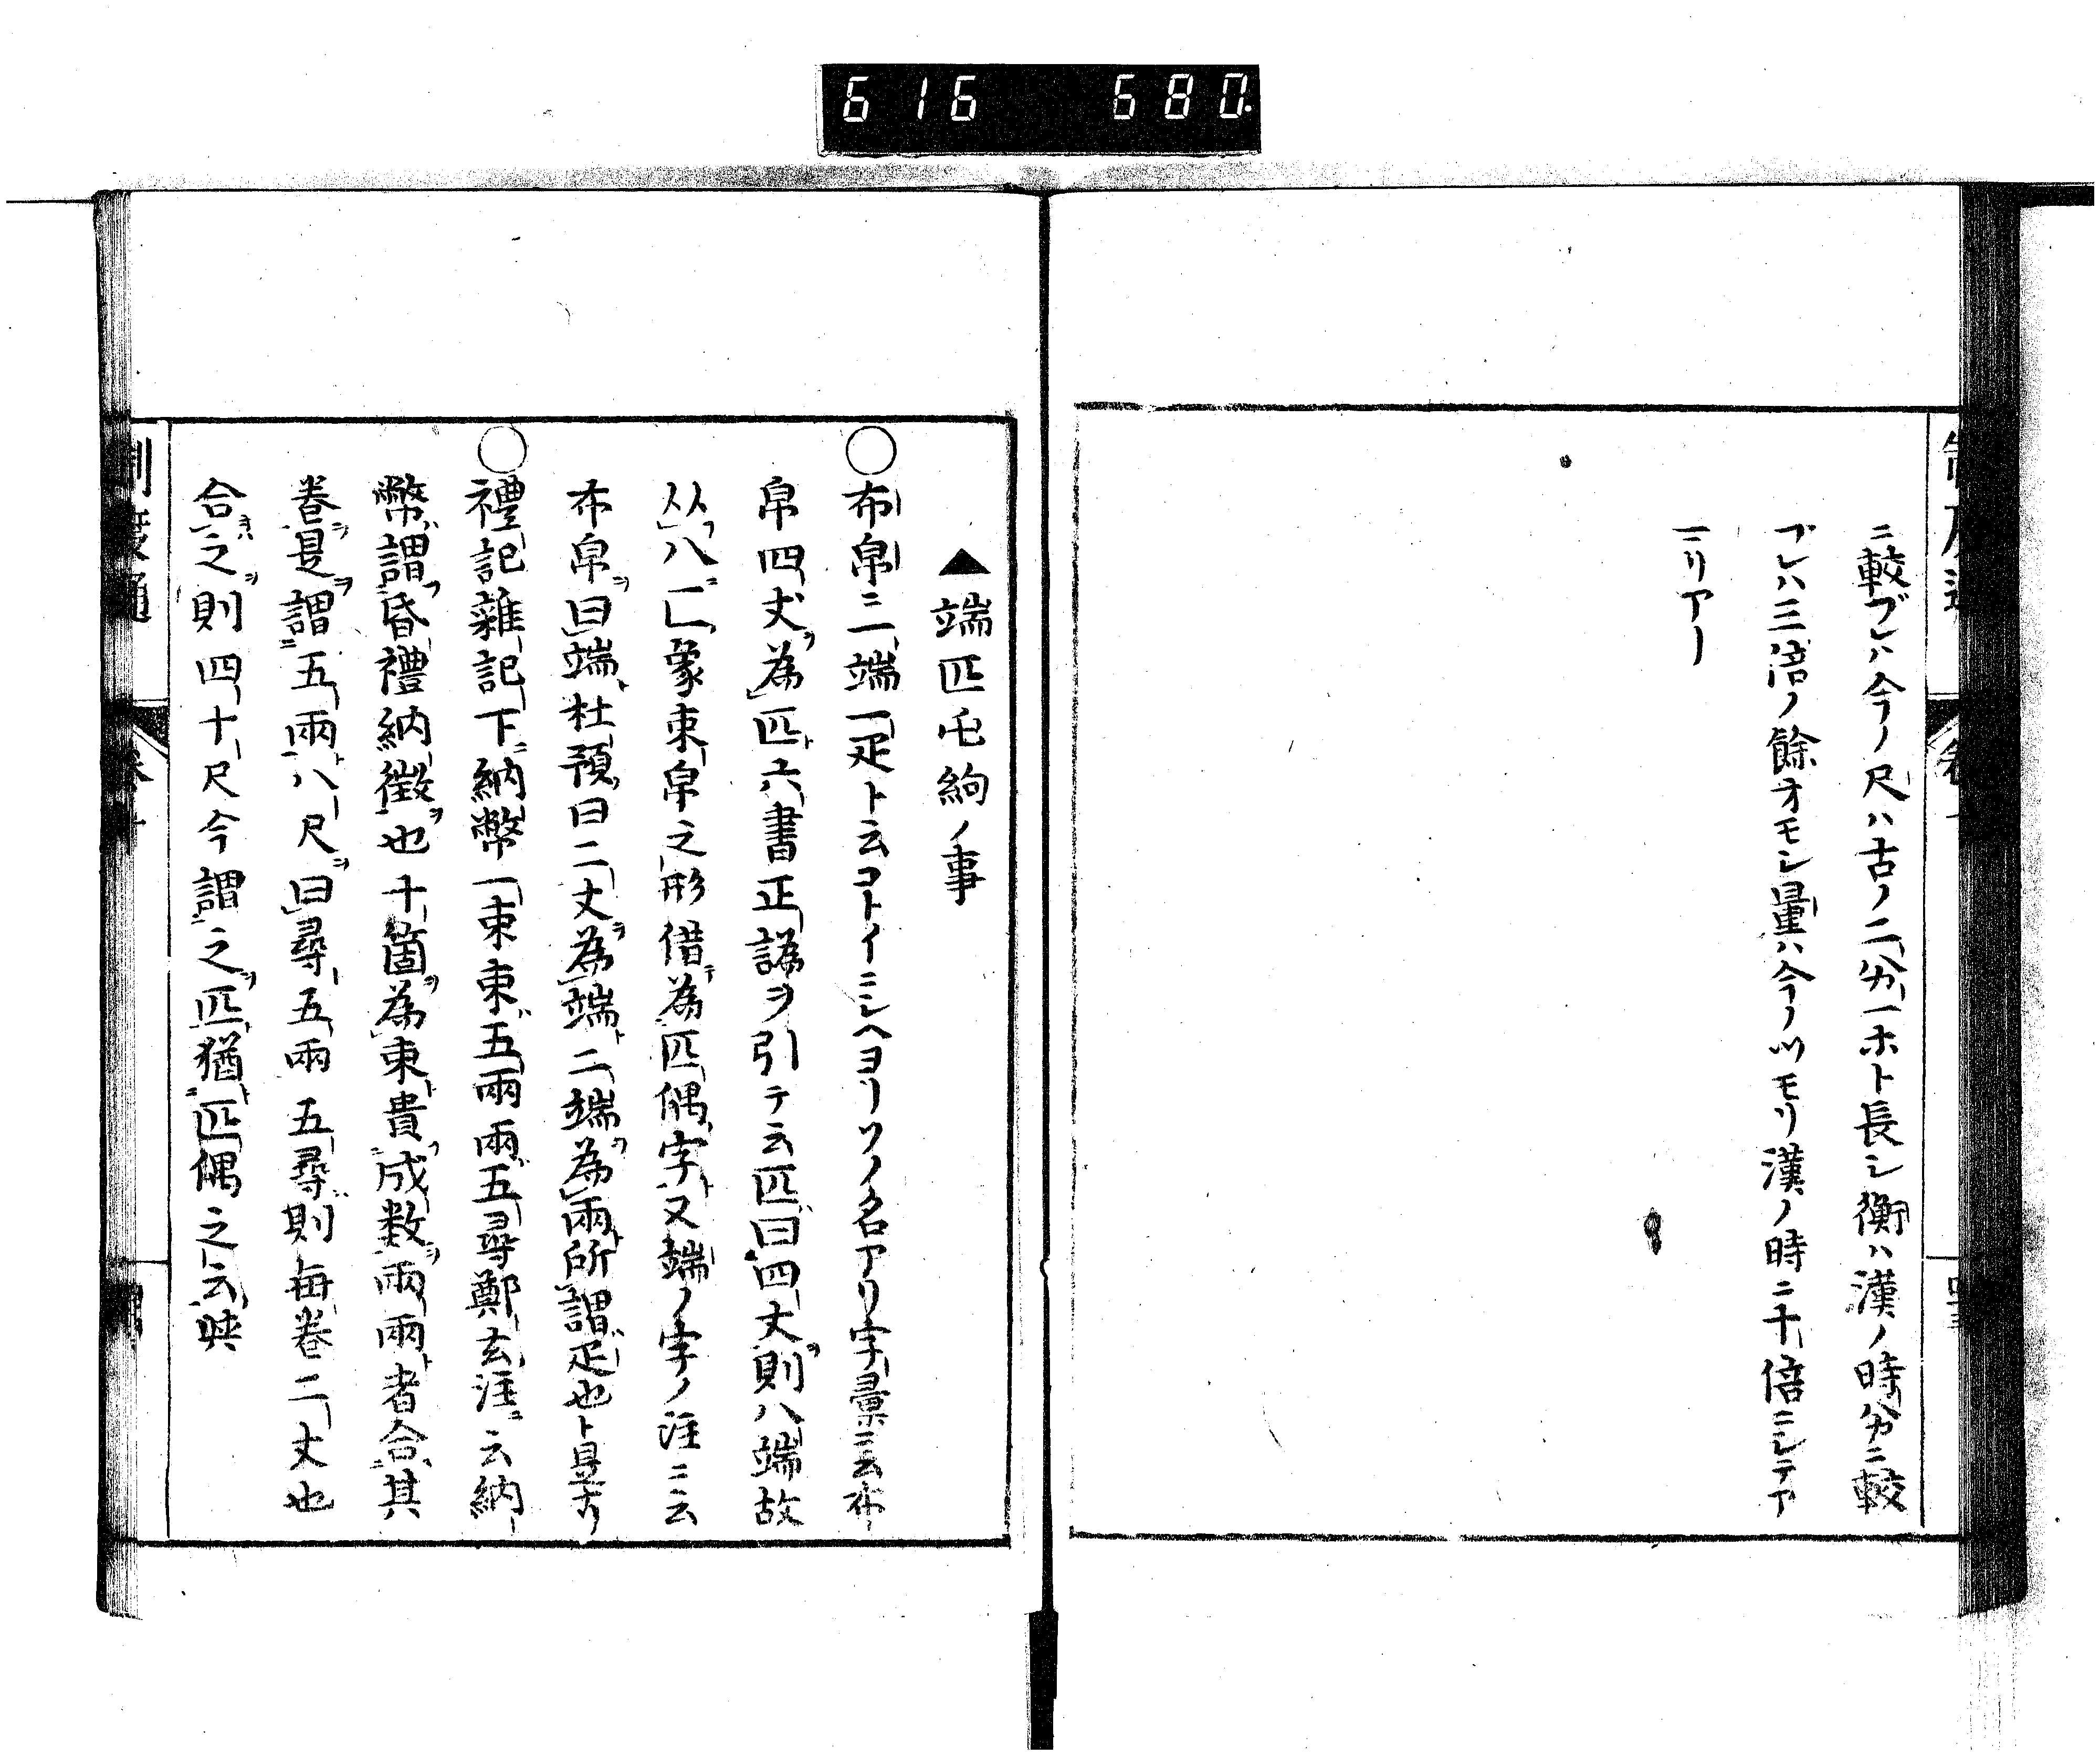 616 680.
ニ較ブレハ今ノ尺ハ古ノ二分一ホト長シ衡ハ漢ノ時分ニ較
ブレハ三倍ノ餘オモシ量ハ今ノツモリ漢ノ時ニ十倍ニシテア
ニリアー
▲端匹屯絇ノ事
○布帛ニ一端一疋ト云コトイニシヘヨリソノ名アリ字彙ニ云布
帛四丈為匹六書正譌ヲ引テ云匹曰四丈則八端故
从八匸象束帛之形借為匹偶字又端ノ字ノ注ニ云
布帛曰端杜預曰二丈為端二端為兩所謂疋也ト見ヘタリ
○禮記雜記下納幣一束束五兩兩五尋鄭玄注云納
幣謂昏禮納徵也十箇為束貴成数兩兩者合其
卷是謂五兩八尺曰尋五兩五尋則每卷二丈也
合之則四十尺今謂之匹猶匹偶之云與
制度通